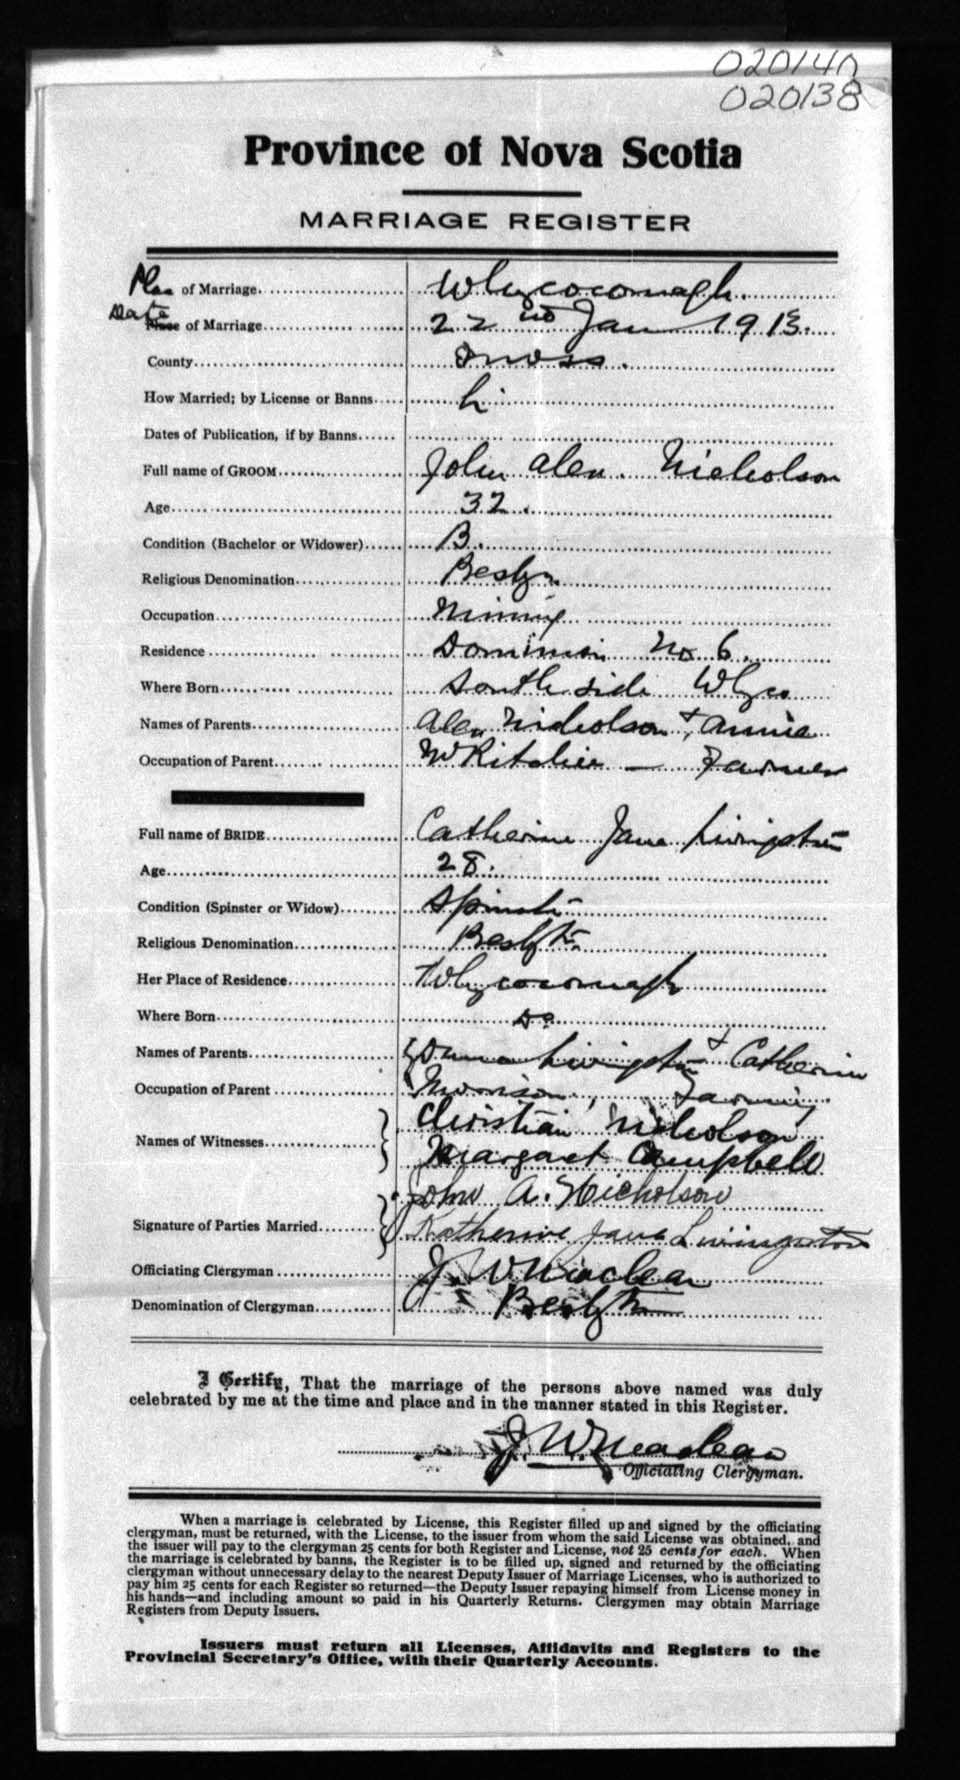 020140
020138
Province of Nova Scotia
MARRIAGE REGISTER
Place of Marriage Whycocomagh.
Date of Marriage 22nd Jan 1913.
County Inverness.
How Married; by License or Banns L
Dates of Publication, if by Banns
Full name of GROOM John Alex. Nicholson
Age 32.
Condition (Bachelor or Widower) B.
Religious Denomination Presbyn
Occupation Mining
Residence Dominion No 6.
Where Born South side Whyco
Names of Parents Alex Nicholson & Annie
Occupation of Parent McRitchie — Farmer
Full name of BRIDE Catherine Jane Livingston
Age 28.
Condition (Spinster or Widow) Spinster
Religious Denomination Presbytn
Her Place of Residence Whycocomagh
Where Born Do
Names of Parents Livingston & Catherine
Occupation of Parent Morrison, Farming
Names of Witnesses Christian Nicholson
Margaret Campbell
John A. Nicholson
Signature of Parties Married Katherine Jane Livingston
Officiating Clergyman J. W. Maclean
Denomination of Clergyman Presbytn
I Certify, That the marriage of the persons above named was duly
celebrated by me at the time and place and in the manner stated in this Register.
J. W. Maclean
Officiating Clergyman.
When a marriage is celebrated by License, this Register filled up and signed by the officiating
clergyman, must be returned, with the License, to the issuer from whom the said License was obtained, and
the issuer will pay to the clergyman 25 cents for both Register and License, not 25 cents for each. When
the marriage is celebrated by banns, the Register is to be filled up, signed and returned by the officiating
clergyman without unnecessary delay to the nearest Deputy Issuer of Marriage Licenses, who is authorized to
pay him 25 cents for each Register so returned—the Deputy Issuer repaying himself from License money in
his hands—and including amount so paid in his Quarterly Returns. Clergymen may obtain Marriage
Registers from Deputy Issuers.
Issuers must return all Licenses, Affidavits and Registers to the
Provincial Secretary's Office, with their Quarterly Accounts.